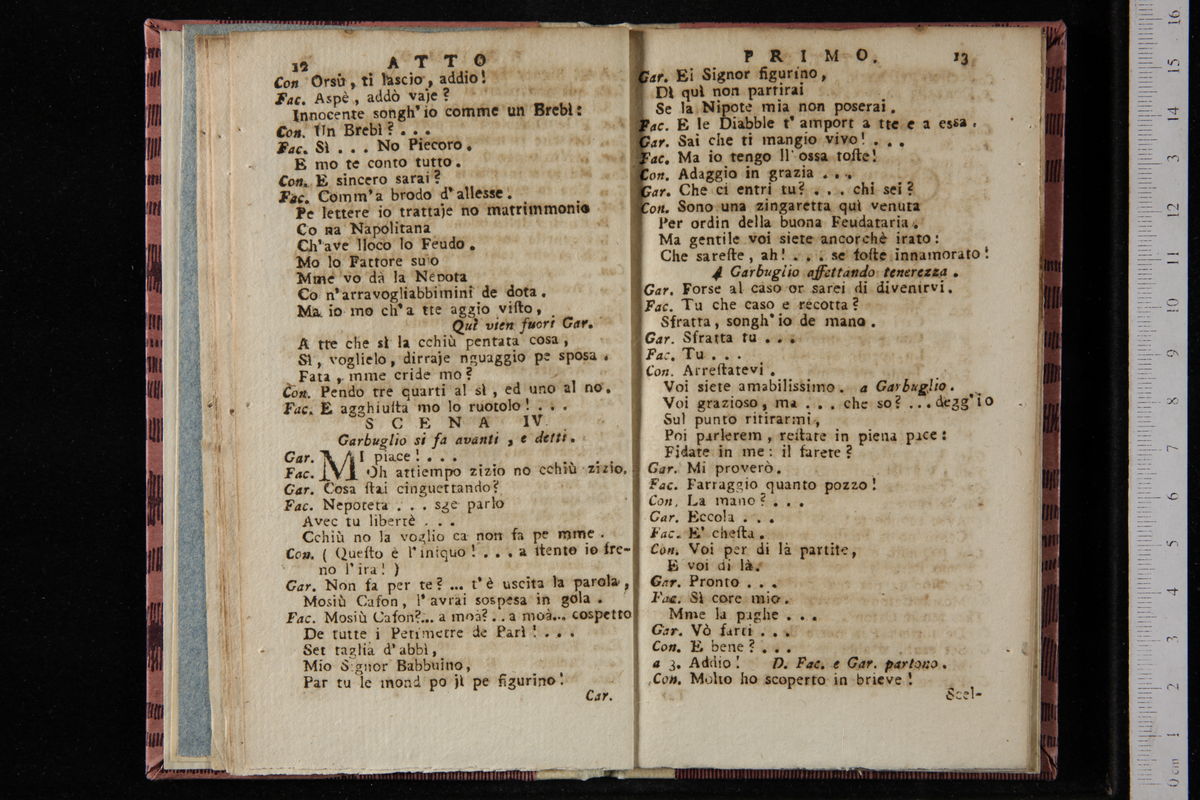 12 ATTO
Con Orsù, ti lascio, addio!
Fac. Aspè, addò vaje?
Innocente songh'io comme un Brebì:
Con. Un Brebì? . . .
Fac. Sì . . . No Piecoro.
E mo te conto tutto.
Con. E sincero sarai?
Fac. Comm'a brodo d'allesse.
Pe lettere io trattaje no matrimmonio
Co na Napolitana
Ch'ave lloco lo Feudo.
Mo lo Fattore suo
Mme vo dà la Nepota
Co n'arravogliabbimini de dota.
Ma io mo ch'a tte aggio visto,
Quì vien fuori Gar.
A tte che si la cchiù pentata cosa,
Sì, voglielo, dirraje nguaggio pe sposa.
Fata, mme cride mo?
Con. Pendo tre quarti al sì, ed uno al no.
Fac. E agghiusta mo lo ruotolo! . . .
SCENA IV.
Garbuglio si fa avanti, e detti.
Gar. MI piace! . . .
Fac. Oh attiempo zizio no cchiù zizio.
Gar. Cosa stai cinguettando?
Fac. Nepoteta . . . sge parlo
Avec tu libertè . . .
Cchiù no la voglio ca non fa pe mme.
Con. ( Questo è l'iniquo! . . . a stento io fre-
no l'ira! )
Gar. Non fa per te? ... t'è uscita la parola,
Mosiù Cafon, l'avrai sospesa in gola.
Fac. Mosiù Cafon?... a moà?.. a moà... cospetto
De tutte i Petimetre de Parì! . . .
Set taglià d'abbì,
Mio Signor Babbuino,
Par tu le mond po jì pe figurino!
Car.
PRIMO. 13
Gar. Ei Signor figurino,
Di quì non partirai
Se la Nipote mia non poserai.
Fac. E le Diabble t'amport a tte e a essa.
Gar. Sai che ti mangio vivo! . . .
Fac. Ma io tengo ll'ossa toste!
Con. Adaggio in grazia . . .
Gar. Che ci entri tu? . . . chi sei?
Con. Sono una zingaretta quì venuta
Per ordin della buona Feudataria.
Ma gentile voi siete ancorchè irato:
Che sareste, ah! . . . se foste innamorato!
A Garbuglio affettando tenerezza.
Gar. Forse al caso or sarei di divenirvi.
Fac. Tu che caso e recotta?
Sfratta, songh'io de mano.
Gar. Sfratta tu . . .
Fac. Tu . . .
Con. Arrestatevi.
Voi siete amabilissimo. a Garbuglio.
Voi grazioso, ma . . . che so? ... degg'io
Sul punto ritirarmi,
Poi parlerem, restate in piena pace:
Fidate in me: il farete?
Gar. Mi proverò.
Fac. Farraggio quanto pozzo!
Con. La mano? . . .
Gar. Eccola . . .
Fac. E' chesta.
Con. Voi per di là partite,
E voi di là.
Gar. Pronto . . .
Fac. Sì core mio.
Mme la paghe . . .
Gar. Vò farti . . .
Con. E bene? . . .
a 3. Addio! D. Fac. e Gar. partono.
Con. Molto ho scoperto in brieve!
Scel-